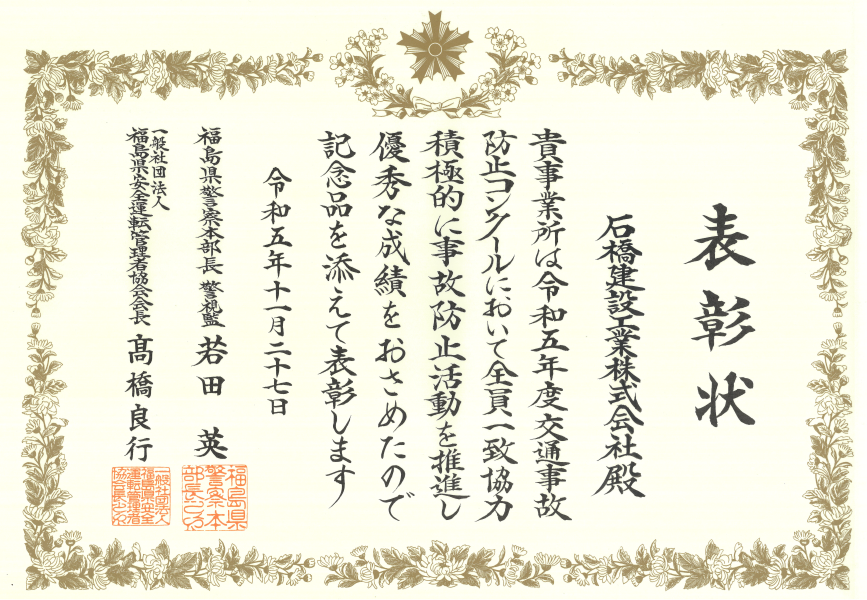 表彰状
石橋建設工業株式会社殿
貴事業所は令和五年度交通事故
防止コンクールにおいて全員一致協力
積極的に事故防止活動を推進し
優秀な成績をおさめたので
記念品を添えて表彰します
令和五年十一月二十七日
福島県警察本部長 警視監 若田 英
一般社団法人
福島県安全運転管理者協会会長 髙橋良行
福島県
警察本
部長之印
一般社団法人
福島県安全
運転管理者
協会長之印